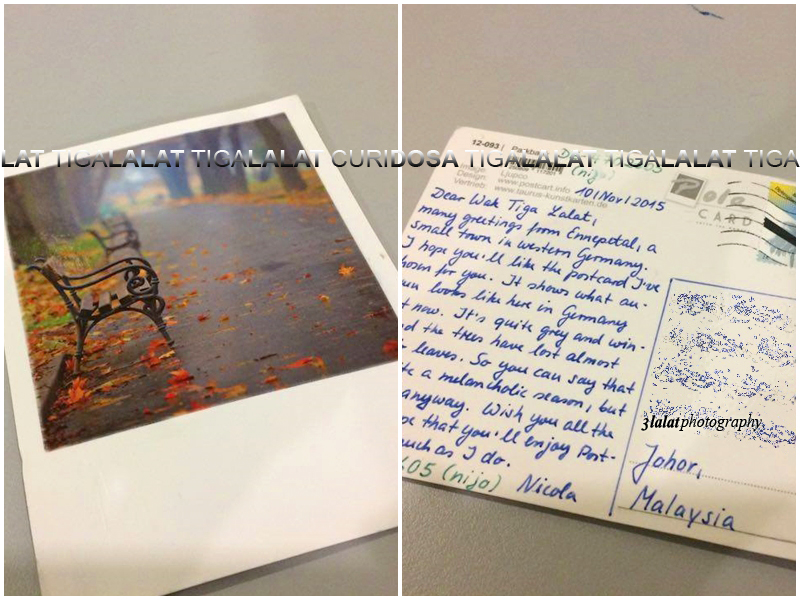 LAT TIGALALAT TIGALALAT CURIDOSA TIGALALAT TIGALALAT TIGA
12-093 Parkba
Design: Ljupco
www.postcart.info
Vertrieb: www.taurus-kunstkarten.de
(nijo)
10/Nov/2015
Polo
CARD
Dear Wak Tiga Lalat,
many greetings from Ennepetal, a
small town in western Germany.
I hope you'll like the postcard I've
hosen for you. It shows what au-
un looks like here in Germany
t now. It's quite grey and win-
d the trees have lost almost
leaves. So you can say that
te a melancholic season, but
anyway. Wish you all the
pe that you'll enjoy Post-
uch as I do.
605 (nijo) Nicola
3lalatphotography
Johor,
Malaysia